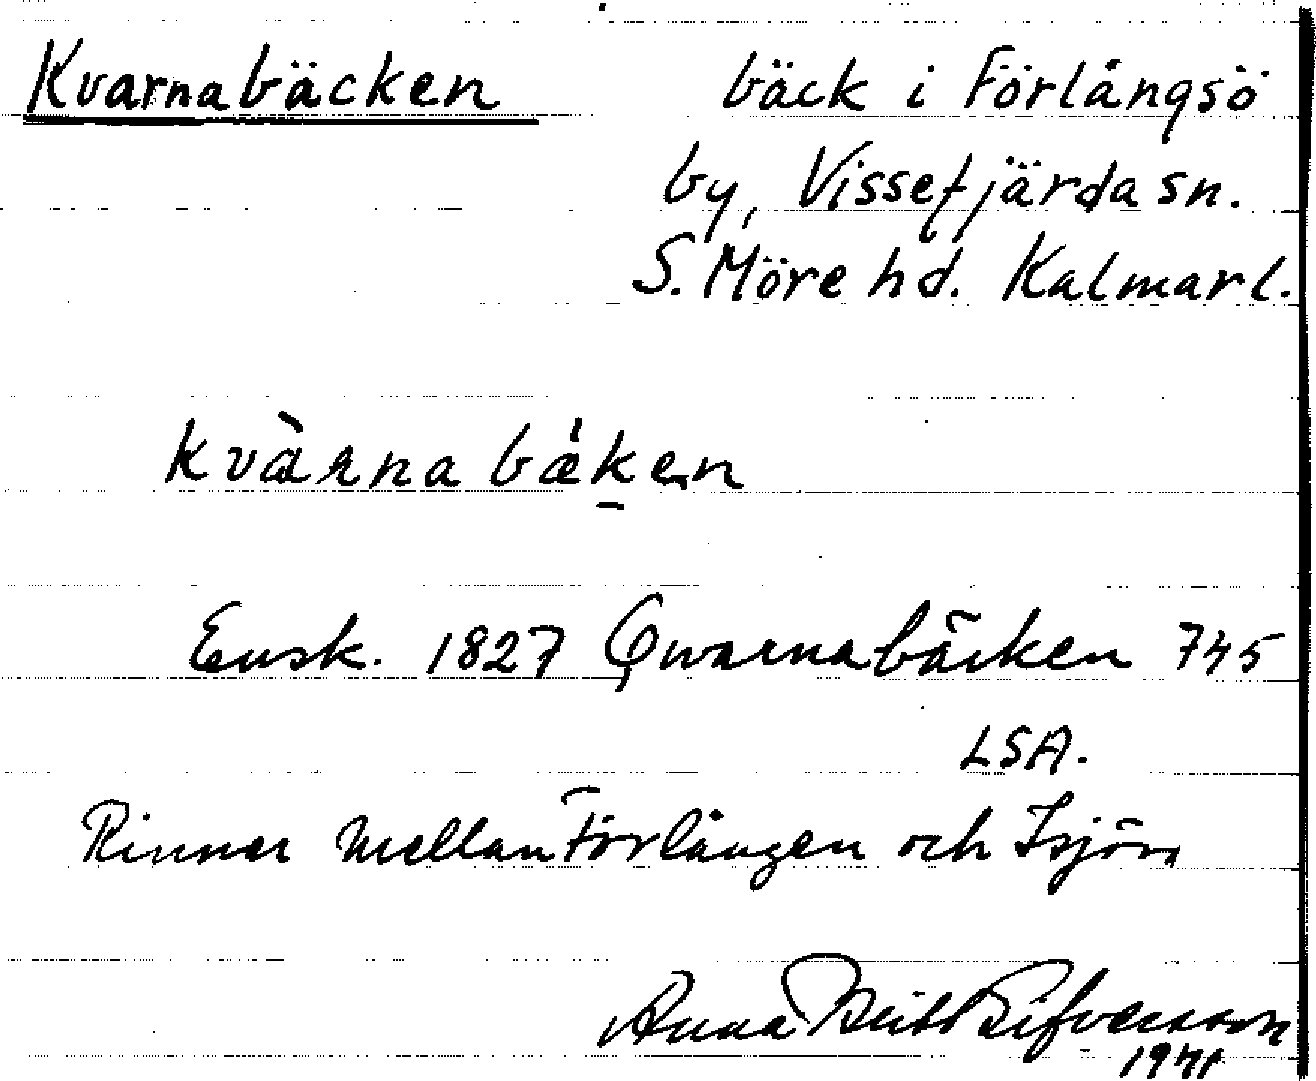 Kvarnabäcken bäck i Förlångsö
by, Vissefjärda sn.
S. Möre hd. Kalmar l.
kvàrnabǽken
Ensk. 1827 Qwarnabäcken 745
LSA.
Rinner mellan Förlången och Isjön
Anna Britt Sifvensson
1971